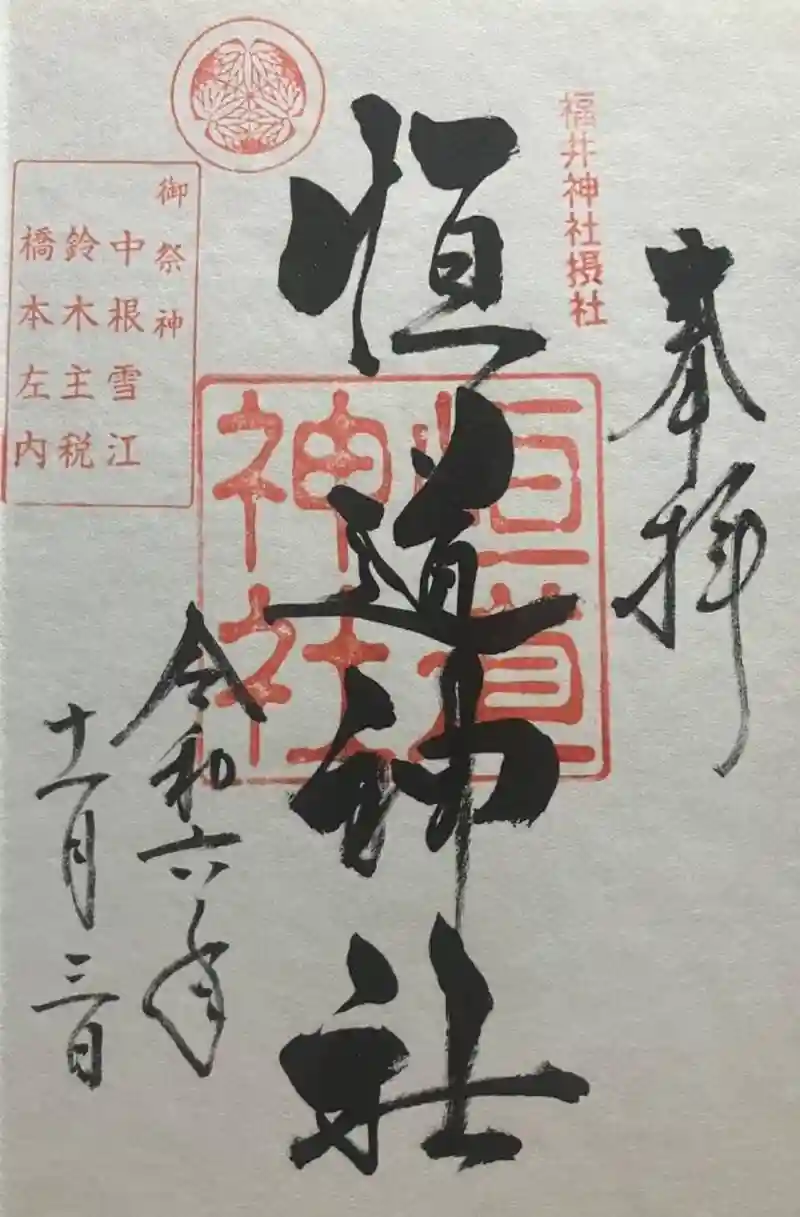 奉拝
福井神社摂社
恒道神社
恒道
神社
令和六年
十一月三日
御祭神
中根雪江
鈴木主税
橋本左内